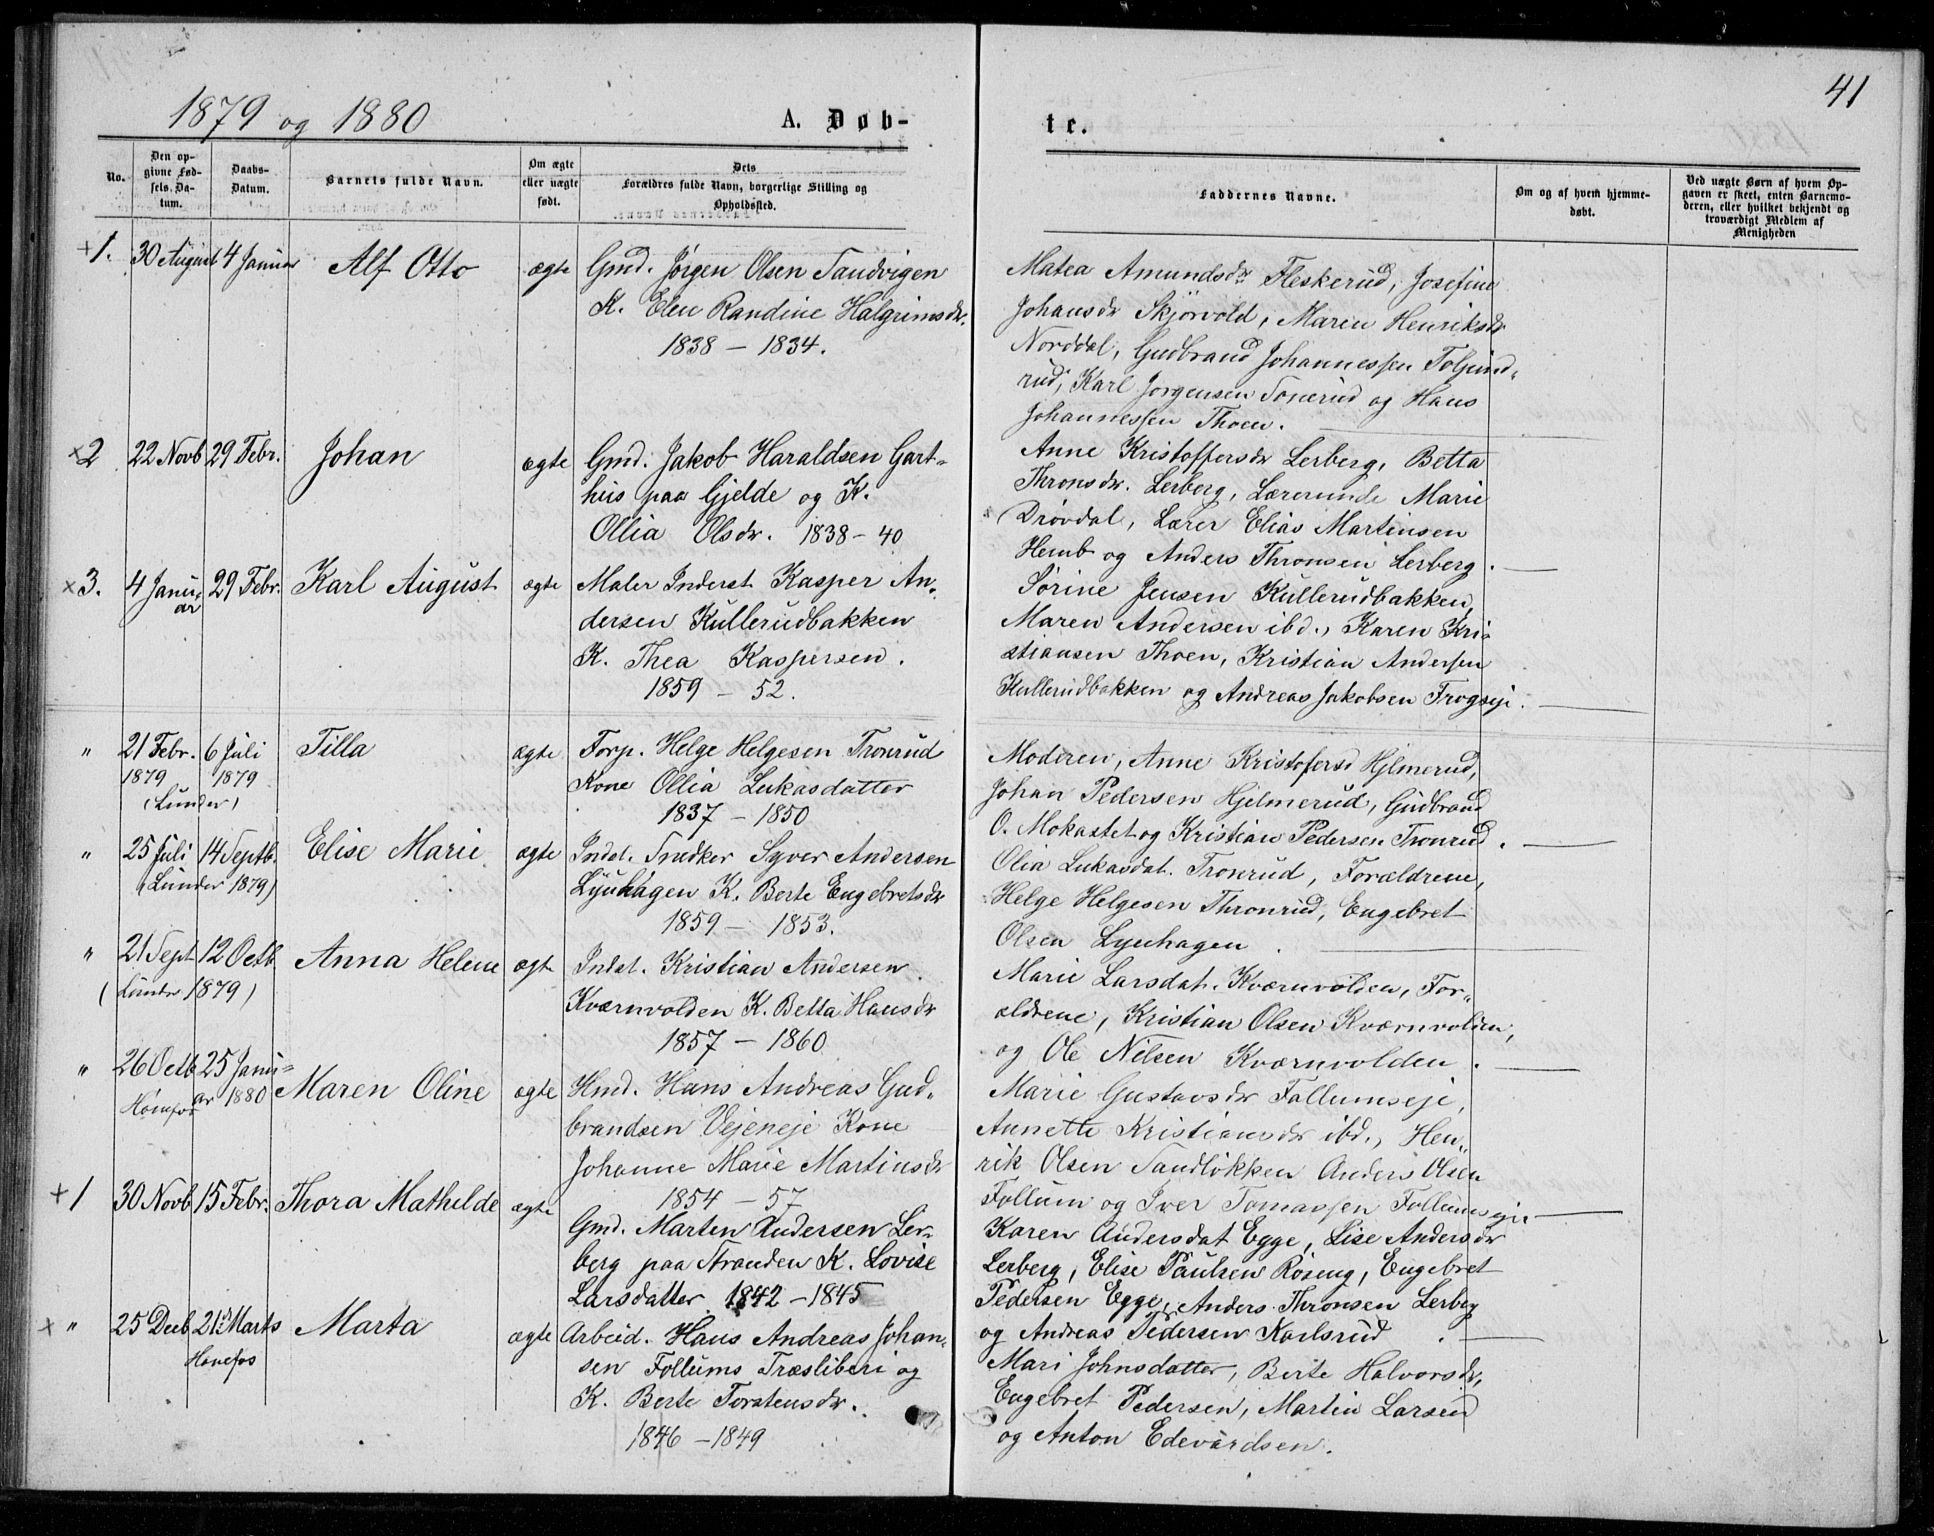 1879 og 1880
A. Døb-
te.
41
No.
Den op-
givne Fød-
sels-Da-
tum.
Daabs-
Datum.
Barnets fulde Navn.
Om ægte
eller uægte
født.
Dets
Forældres fulde Navn, borgerlige Stilling og
Opholdssted.
Faddernes Navne.
Om og af hvem hjemme-
døbt.
Ved uægte Børn af hvem Op-
gaven er skeet, enten Barnemo-
deren, eller hvilket bekjendt og
troværdigt Medlem af
Menigheden
+1. 30 August 4 Januar Alf Otto ægte Gmd. Jørgen Olsen Sandvigen
K. Elen Randine Halgrimsdr.
1838 – 1834.
Matea Amundsdr Fleskerud, Josefine
Johansdr Skjörvold, Maren Henriksdr
Norddal, Gudbrand Johannessen Toljund-
rud, Karl Jorgensen Tonerud og Hans
Johannessen Thoen.
×2 22 Novb 29 Febr. Johan ægte Gmd. Jakob Haraldsen Gart-
hus paa Gjelde og K.
Ollia Olsdr. 1838 – 40
Anne Kristoffersdr Lerberg, Betta
Thronsdr. Lerberg, Lærerinde Marie
Drövdal, Lærer Elias Martinsen
Hemb og Anders Thronsen Lerberg.
×3. 4 Janu-
ar 29 Febr. Karl August ægte Maler Inderst Kasper An-
dersen Kullerudbakken
K. Thea Kaspersen.
1859 – 52.
Sörine Jensen Kullerudbakken,
Maren Andersen ibd., Karen Kri-
stiansen Thoen, Kristian Andersen
Kullerudbakken og Andreas Jakobsen Trogseje.
" 21 Febr. 6 Juli Tilla ægte Forp. Helge Helgesen Tronrud
1879 1879
(Lunder)
Kone Ollia Lukasdatter
1837 – 1850
Moderen, Anne Kristofersd Hjlmerud,
Johan Pedersen Hjelmerud, Gudbrand
O. Mokastet og Kristian Pedersen Tronrud.
" 25 Juli 14 Septb. Elise Marie ægte Indst. Snedker Syver Andersen
(Lunder 1879)
Lyuhagen K. Berte Engebretsdr
1859 – 1853.
Olia Lukasdat. Tronrud, Forældrene,
Helge Helgesen Thronrud, Engebret
Olsen Lyuhagen.
" 21 Sept 12 Octb Anna Helene ægt Indst. Kristian Andersen
(Lunder 1879)
Kværnvolden K. Betta Hansdr
1857 – 1860
Marie Larsdat. Kværnvolden, For-
ældrene, Kristian Olsen Kværnvolden,
og Ole Nilsen Kværnvolden.
" 26 Octb 25 Janu-
ar 1880 Maren Oline ægte Hmd. Hans Andreas Gud-
Hønefos
brandsen Vejeneje Kone
Johanne Marie Martinsdr
1854 – 57
Marie Gustavsdr Follumseje,
Annette Kristiansdr ibd., Hen-
rik Olsen Sandløkken Anders Olsen
Follum og Iver Tomassen Follumseje.
+1 30 Novb 15 Febr. Thora Mathilde ægte Gmd. Marten Andersen Ler-
berg paa Stranden K. Lovise
Larsdatter 1842 – 1845
Karen Andersdat Egge, Lise Andersdr
Lerberg, Elise Paulsen Röseng, Engebret
Pedersen Egge, Anders Thronsen Lerberg
og Andreas Pedersen Karlsrud.
× " 25 Decb 21 Marts Marta ægte Arbeid. Hans Andreas Johan-
Hønefos
sen Follums Træsliberi og
K. Berte Torstensdr.
1846 – 1849
Mari Johnsdatter, Berte Halvorsdr,
Engebret Pedersen, Martin Larsen
og Anton Edevardsen.